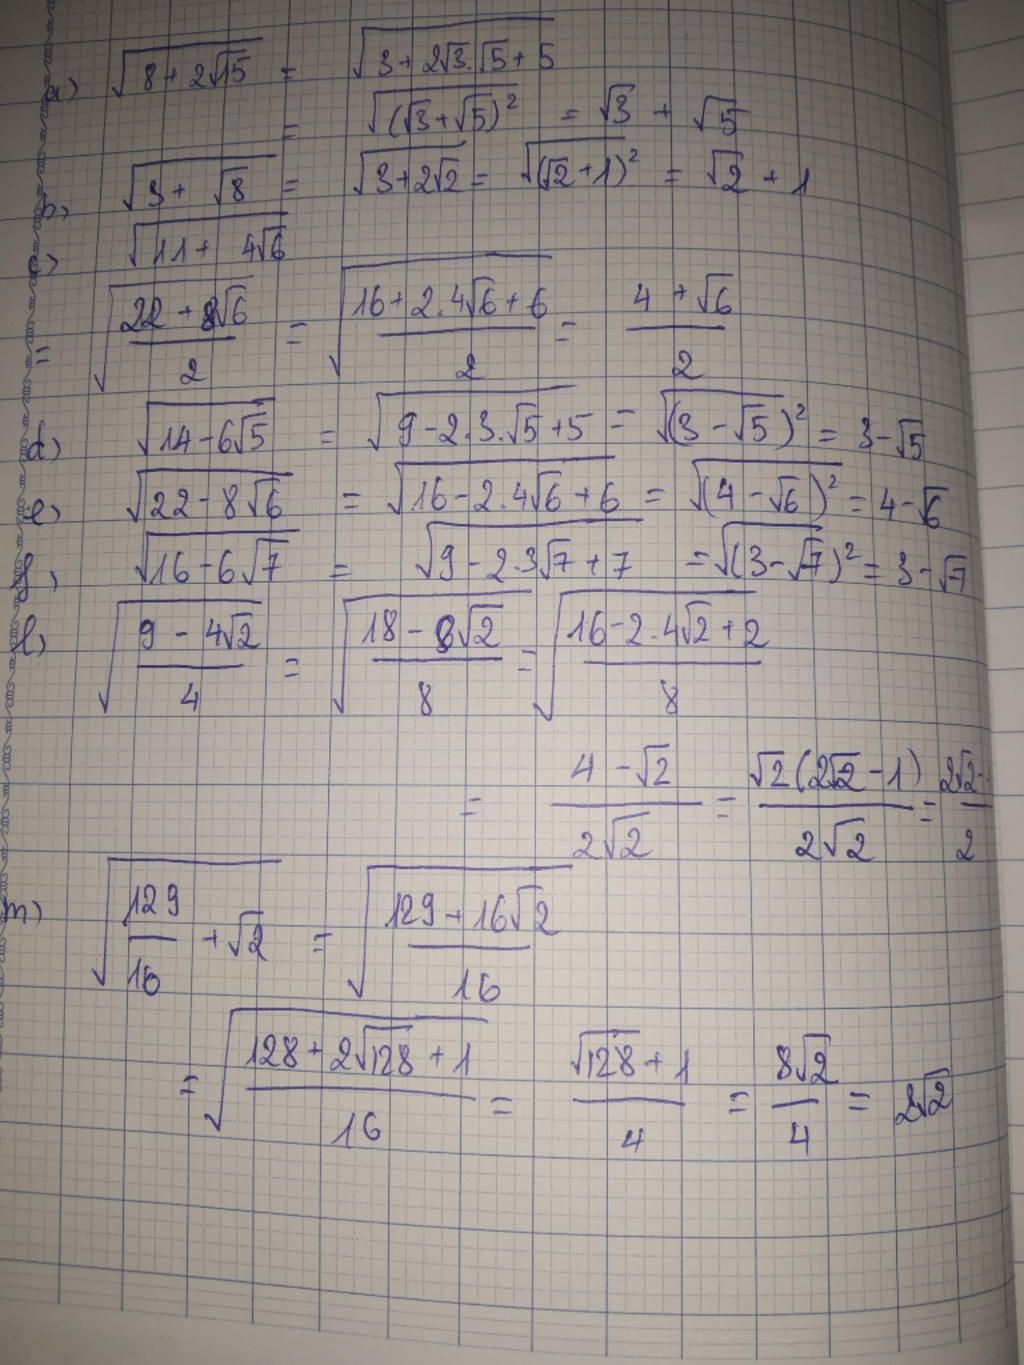 a) √(8 + 2√15) = √(3 + 2√3.√5 + 5)
= √((√3 + √5)²) = √3 + √5
b) √(3 + √8) = √(3 + 2√2) = √((√2 + 1)²) = √2 + 1
c) √(11 + 4√6)
= √((22 + 8√6)/2) = √((16 + 2.4√6 + 6)/2) = (4 + √6)/2
d) √(14 - 6√5) = √(9 - 2.3.√5 + 5) = √((3 - √5)²) = 3 - √5
e) √(22 - 8√6) = √(16 - 2.4√6 + 6) = √((4 - √6)²) = 4 - √6
g) √(16 - 6√7) = √(9 - 2.3√7 + 7) = √((3 - √7)²) = 3 - √7
l) √((9 - 4√2)/4) = √((18 - 8√2)/8) = √((16 - 2.4√2 + 2)/8)
= (4 - √2)/(2√2) = √2(2√2 - 1)/(2√2) = (2√2 -)/2
m) √(129/16 + √2) = √((129 + 16√2)/16)
= √((128 + 2√128 + 1)/16) = (√128 + 1)/4 = 8√2/4 = 2√2